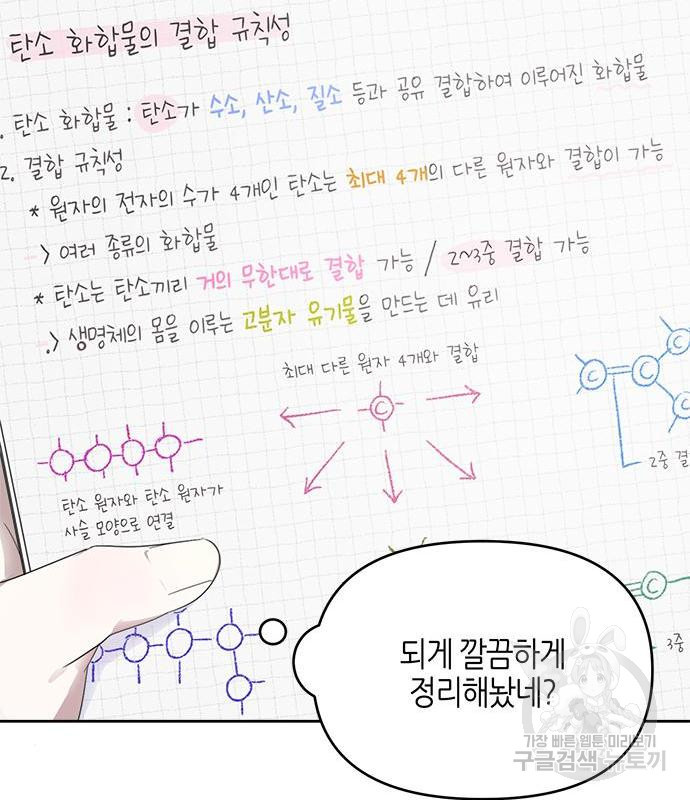 탄소 화합물의 결합 규칙성
. 탄소 화합물 : 탄소가 수소, 산소, 질소 등과 공유 결합하여 이루어진 화합물
2. 결합 규칙성
* 원자의 전자의 수가 4개인 탄소는 최대 4개의 다른 원자와 결합이 가능
-> 여러 종류의 화합물
* 탄소는 탄소끼리 거의 무한대로 결합 가능 / 2~3중 결합 가능
-> 생명체의 몸을 이루는 고분자 유기물을 만드는 데 유리
최대 다른 원자 4개와 결합
C
C
C
C
2중 결
탄소 원자와 탄소 원자가
사슬 모양으로 연결
C
3중
되게 깔끔하게
정리해놨네?
가장 빠른 웹툰 미리보기
구글검색 뉴토끼